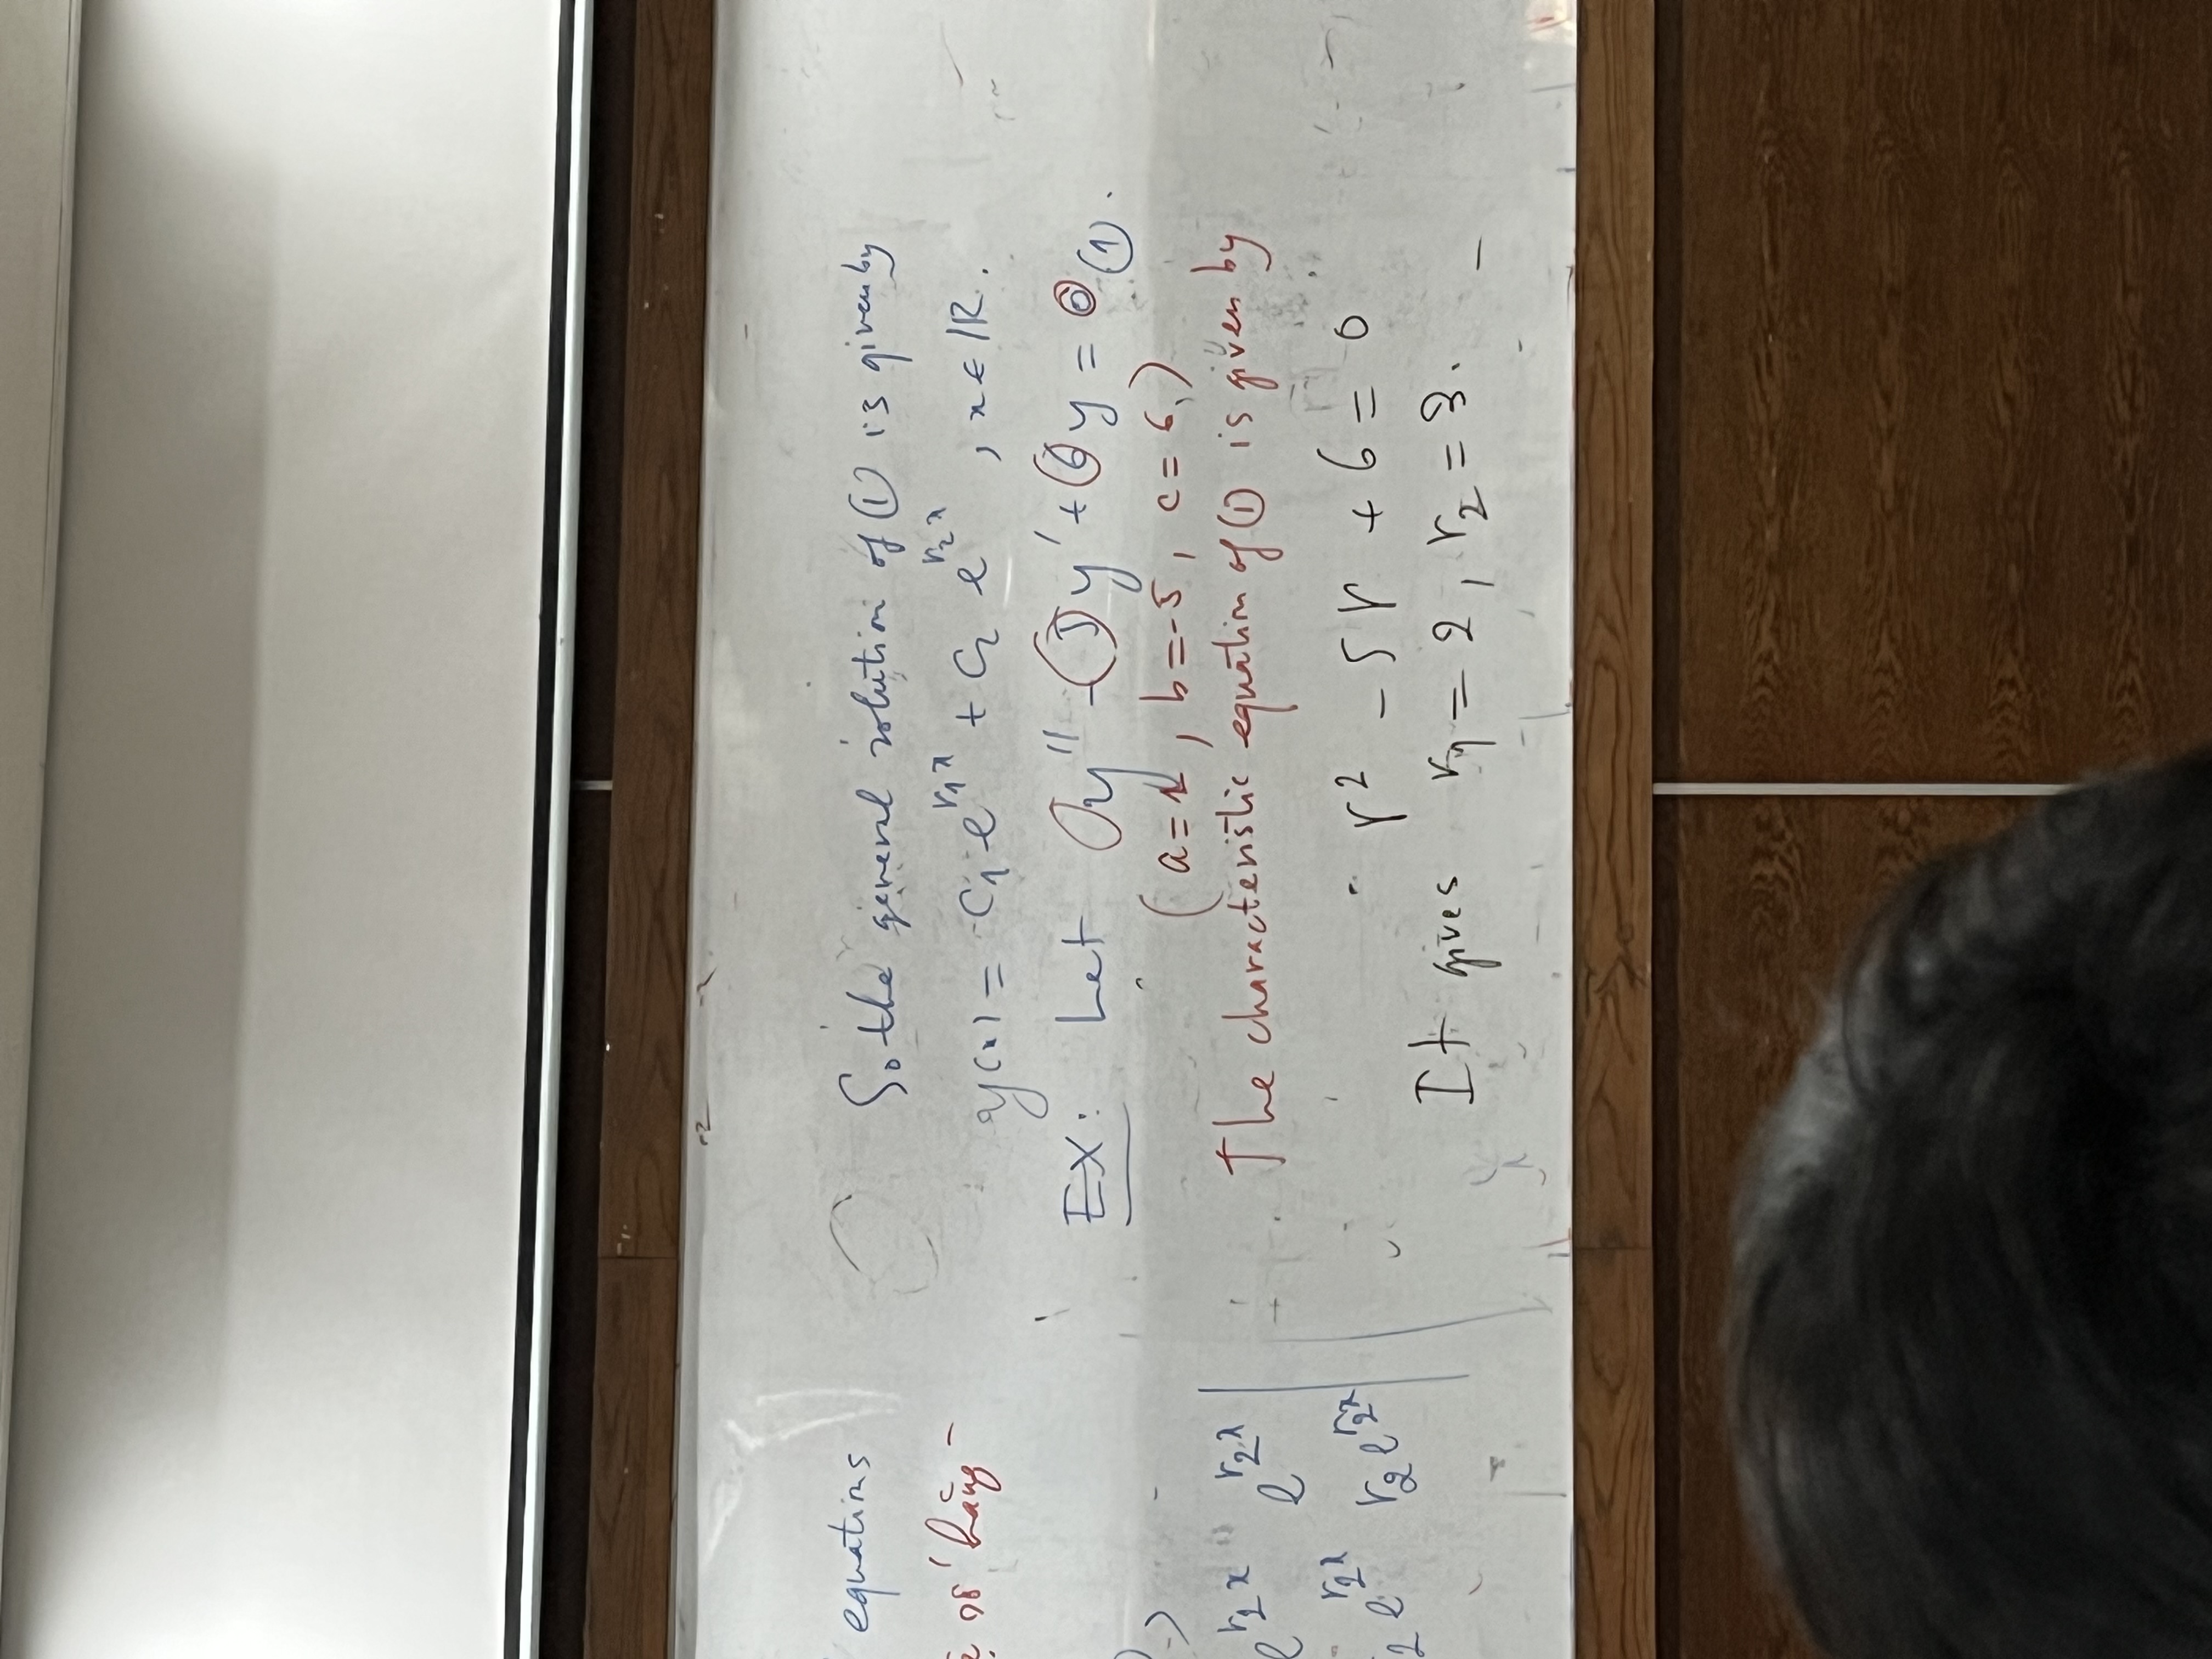 equations
số hằng
e^{r_2 x} e^{r_2 x}
r_2 e^{r_2 x} r_2 e^{r_2 x}
So the general solution of ① is given by
y(x) = C_1 e^{r_1 x} + C_2 e^{r_2 x} , x ∈ IR.
EX: Let y'' - 5y' + 6y = 0 (1).
(a=1, b=-5, c=6,)
The characteristic equation of ① is given by
r² - 5r + 6 = 0
It gives r_1 = 2, r_2 = 3.